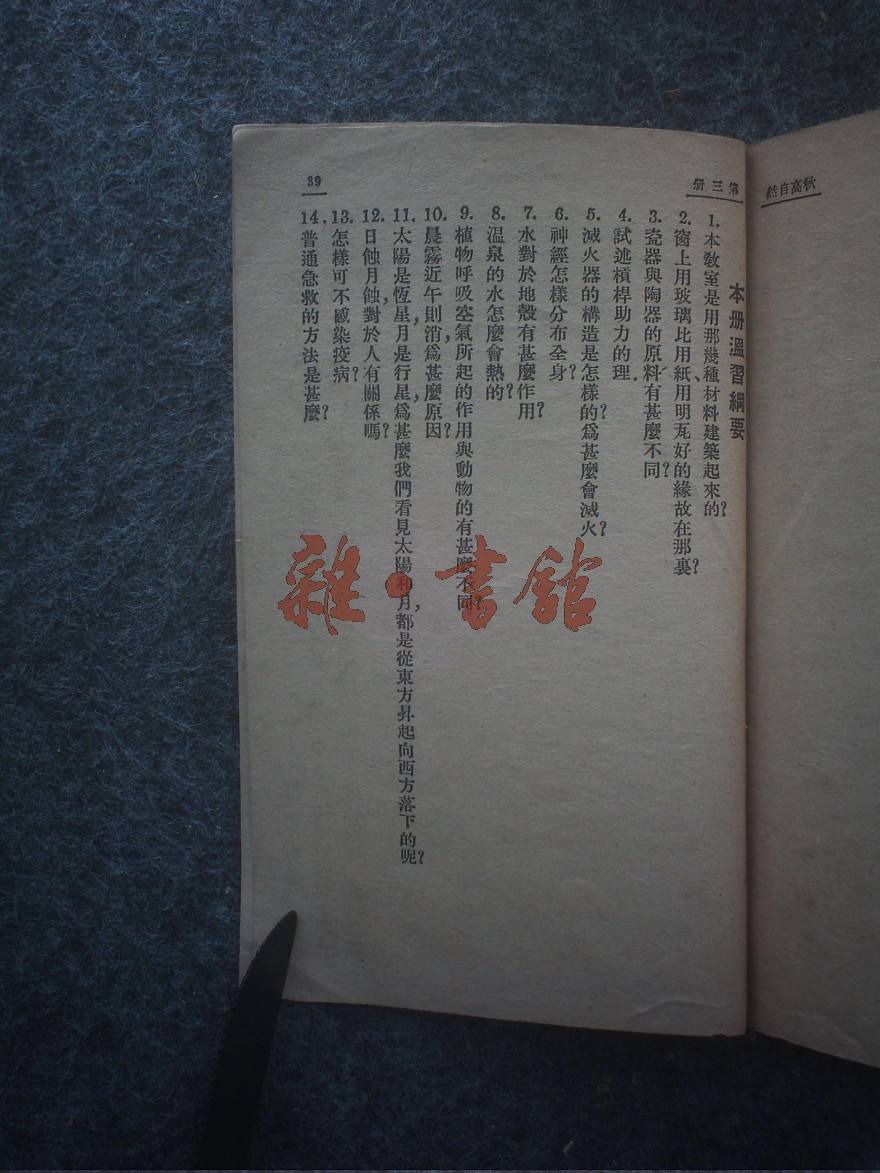 秋高自然
第三册
39
本册溫習綱要
1. 本教室是用那幾種材料建築起來的?
2. 窗上用玻璃比用紙、用明瓦好的緣故在那裏?
3. 瓷器與陶器的原料有甚麼不同?
4. 試述槓桿助力的理.
5. 滅火器的構造是怎樣的?爲甚麼會滅火?
6. 神經怎樣分布全身?
7. 水對於地殼有甚麼作用?
8. 温泉的水怎麼會熱的?
9. 植物呼吸空氣所起的作用與動物的有甚麼不同?
10. 晨霧近午則消,爲甚麼原因?
11. 太陽是恆星,月是行星,爲甚麼我們看見太陽和月,都是從東方昇起向西方落下的呢?
12. 日蝕月蝕,對於人有關係嗎?
13. 怎樣可不感染疫病?
14. 普通急救的方法是甚麼?
雜·書館